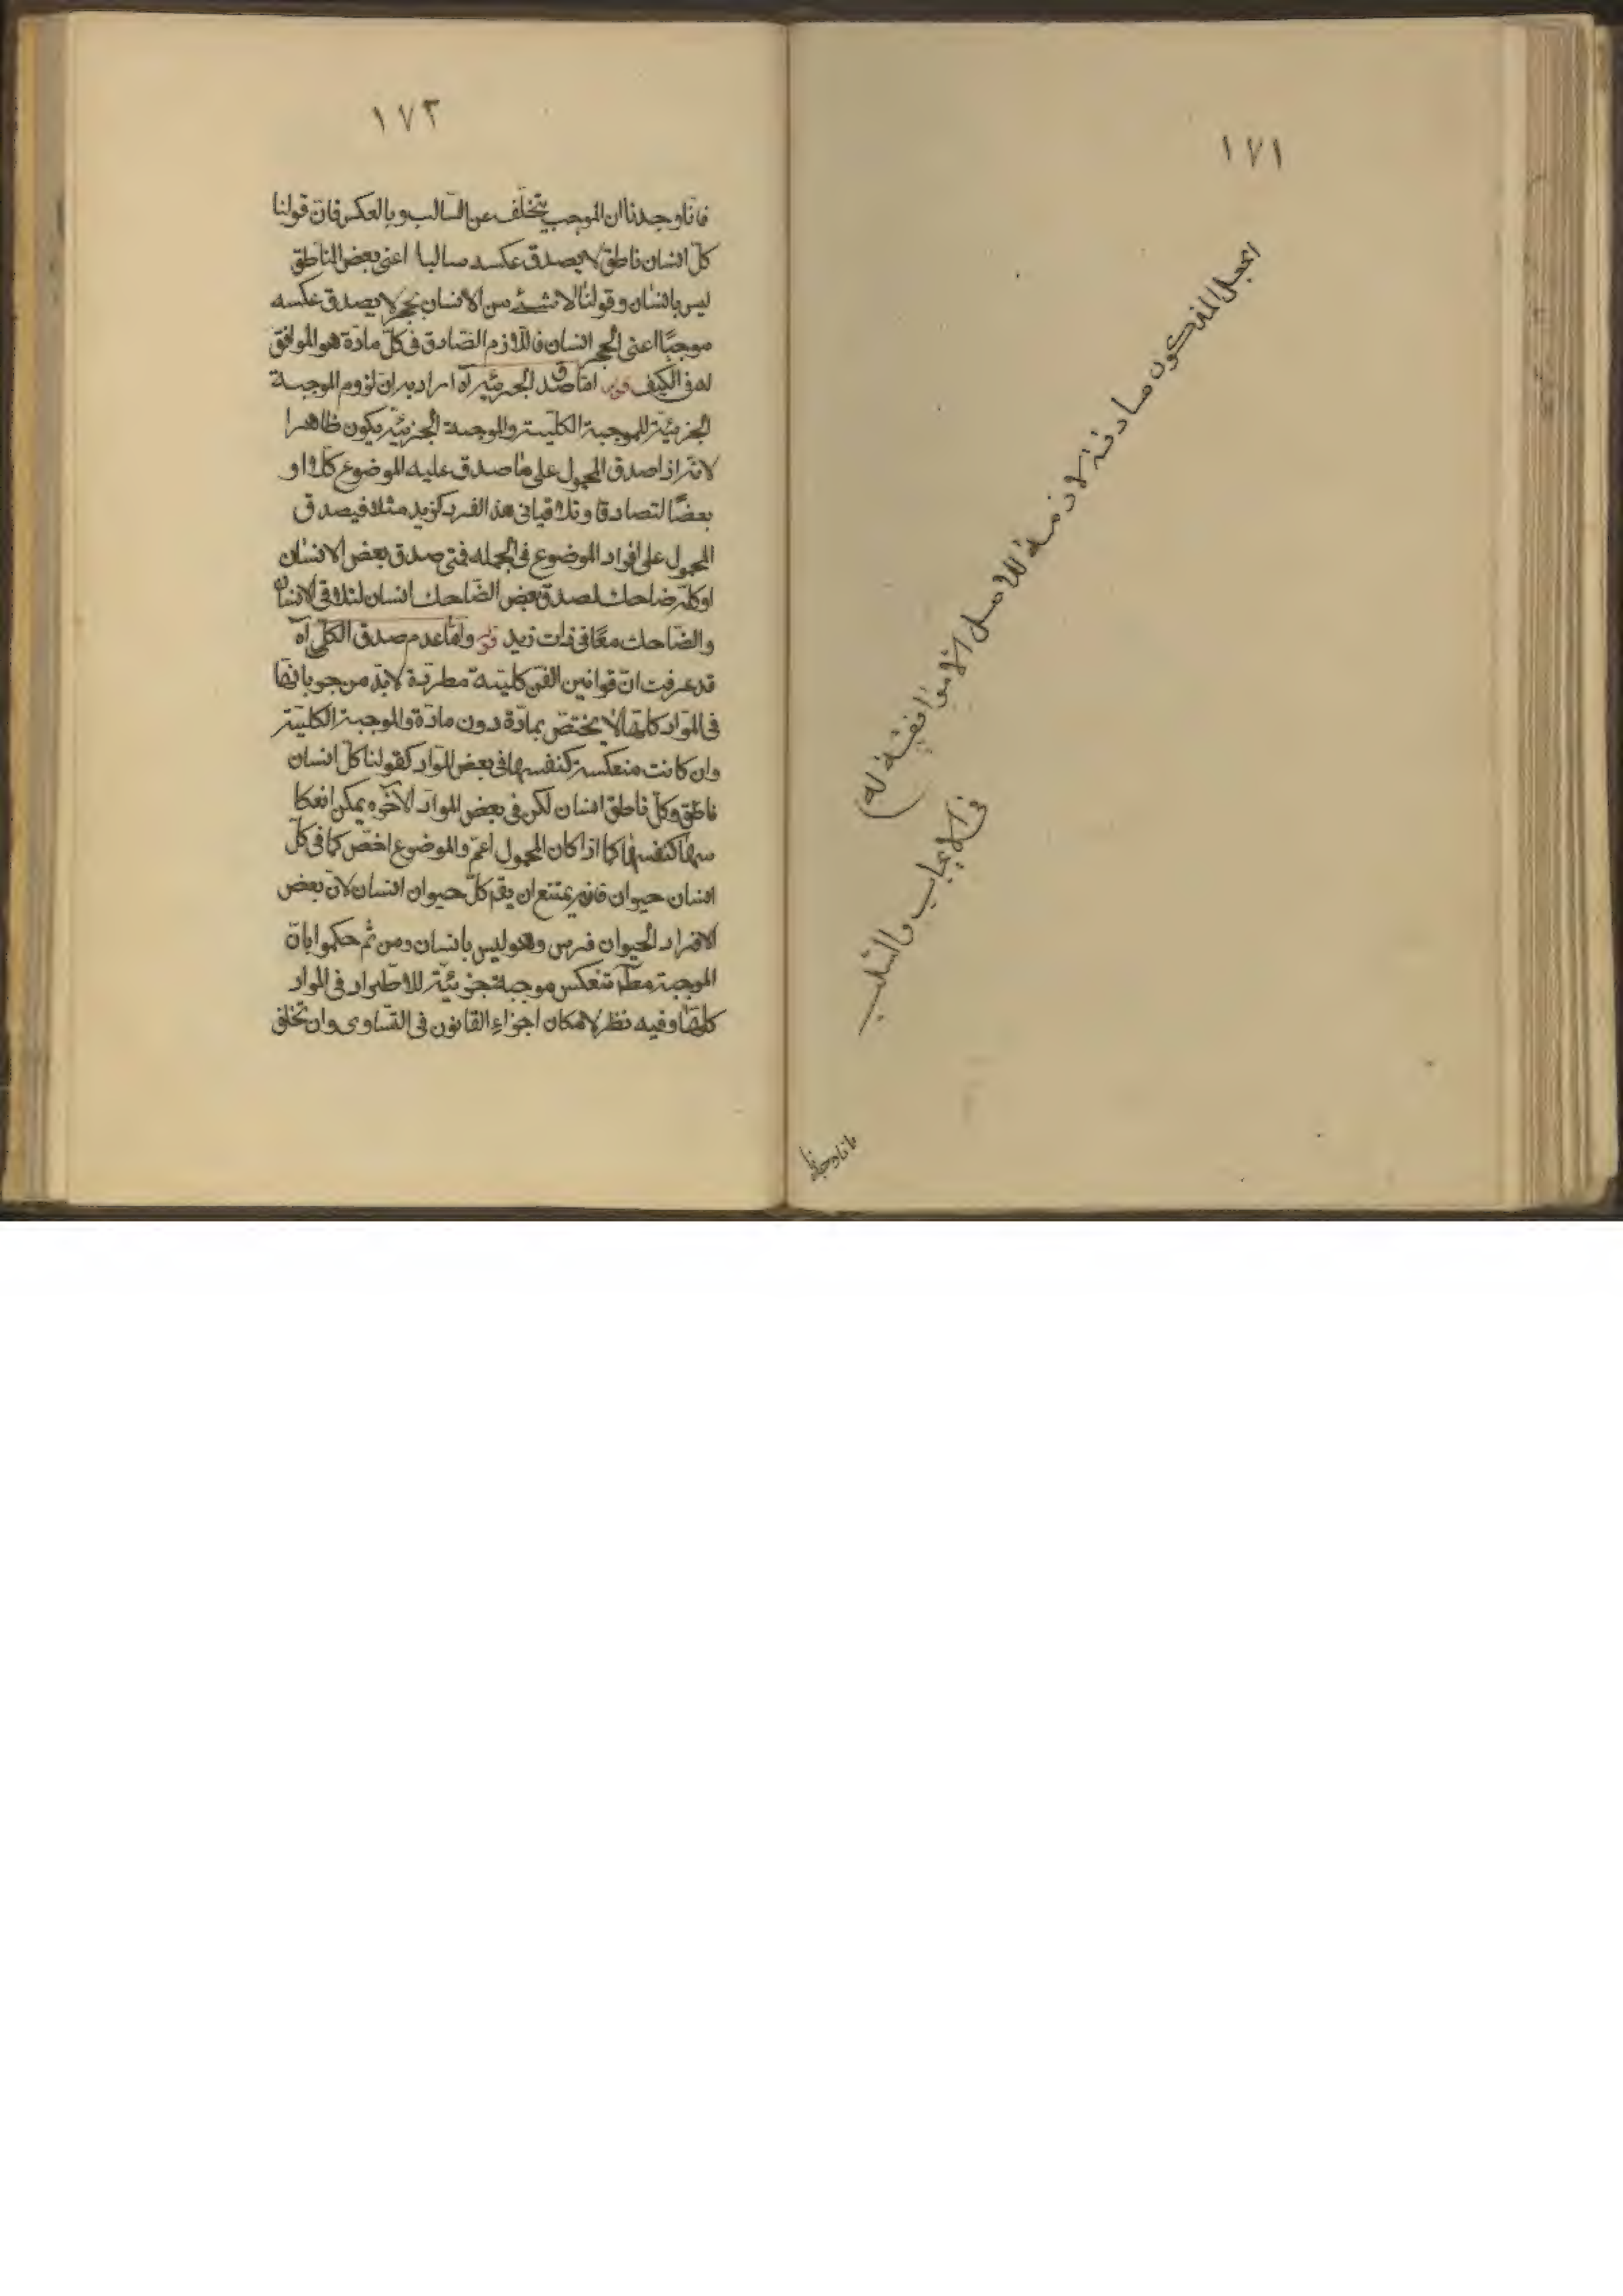 ١٧١
الجعل المذكور صادقة لازمة للاصل الا موافقة له
فى الايجاب والسلب
فانا وجدنا
١٧٢
فانا وجدنا ان الموجب يتخلف عن السالب وبالعكس فان قولنا
كل انسان ناطق لا يصدق عكسه سالبا اعنى بعض الناطق
ليس بانسان وقولنا لا شئ من الانسان بحجر لا يصدق عكسه
موجبًا اعنى الحجر انسان فاللازم الصادق فى كل مادة هو الموافق
له فى الكيف قوله اما صدق الجزئية آه اراد به ان لزوم الموجبة
الجزئية للموجبة الكلية والموجبة الجزئية يكون ظاهرا
لانه اذا صدق المحمول على ما صدق عليه الموضوع كلا او
بعضًا لتصادقا وتلاقيا فى هذا الفرد كزيد مثلا فيصدق
المحمول على افراد الموضوع فى الجمله فمتى صدق بعض الانسان
او كله ضاحك لصدق بعض الضاحك انسان لتلاقى الانسان
والضاحك معًا فى ذات زيد قوله واما عدم صدق الكلى آه
قد عرفت ان قوانين الفن كلية مطردة لابد من جريانها
فى المواد كلها لا يختص بمادة دون مادة والموجبة الكلية
وان كانت منعكسة كنفسها فى بعض المواد كقولنا كل انسان
ناطق وكل ناطق انسان لكن فى بعض المواد الاخره يمكن انعكا
سها كنفسها كما اذا كان المحمول اعم والموضوع اخص كما فى كل
انسان حيوان فانه يمتنع ان يقم كل حيوان انسان لان بعض
الافراد الحيوان فرس وهو ليس بانسان ومن ثم حكموا بان
الموجبة مطلم تنعكس موجبة جزئية للاطراد فى المواد
كلها وفيه نظر لامكان اجزاء القانون فى التساوى وان تخلف